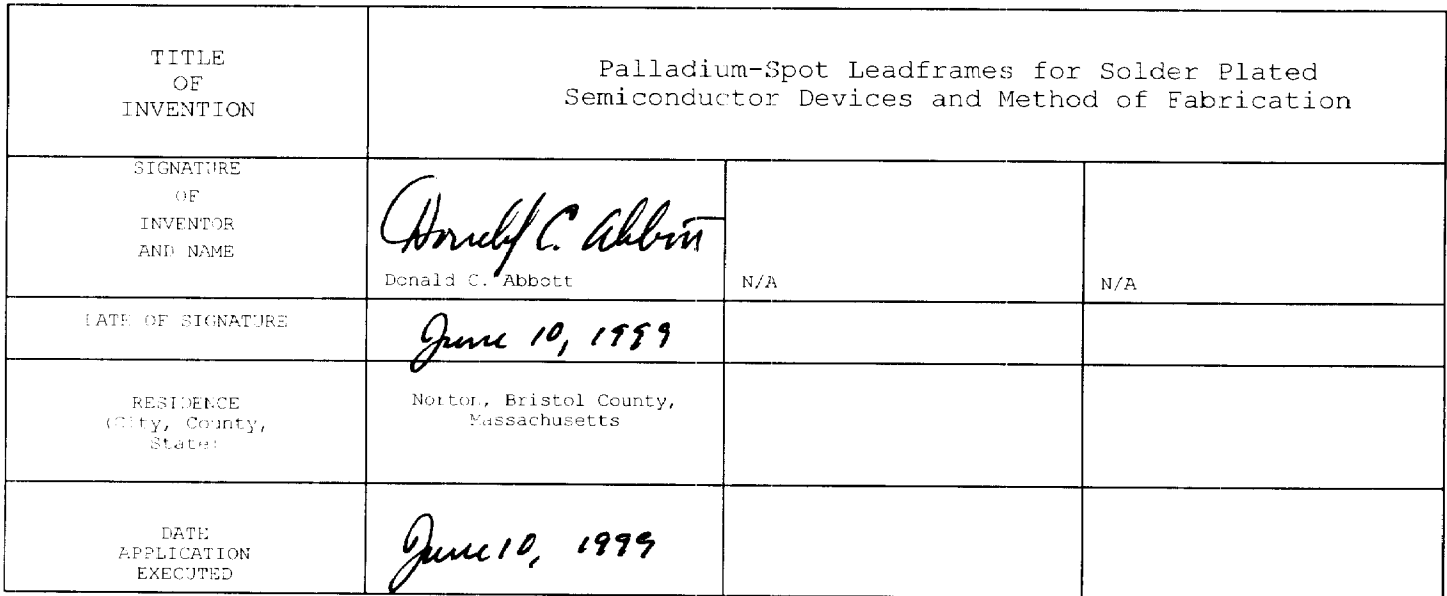 TITLE
OF
INVENTION
Palladium-Spot Leadframes for Solder Plated
Semiconductor Devices and Method of Fabrication
SIGNATURE
OF
INVENTOR
AND NAME
Donald C. Abbott
Donald C. Abbott
N/A
N/A
DATE OF SIGNATURE
June 10, 1999
RESIDENCE
(City, County,
State)
Norton, Bristol County,
Massachusetts
DATE
APPLICATION
EXECUTED
June 10, 1999